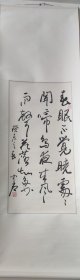 春眠不觉晓处处
闻啼鸟夜来风
雨声花落知多少